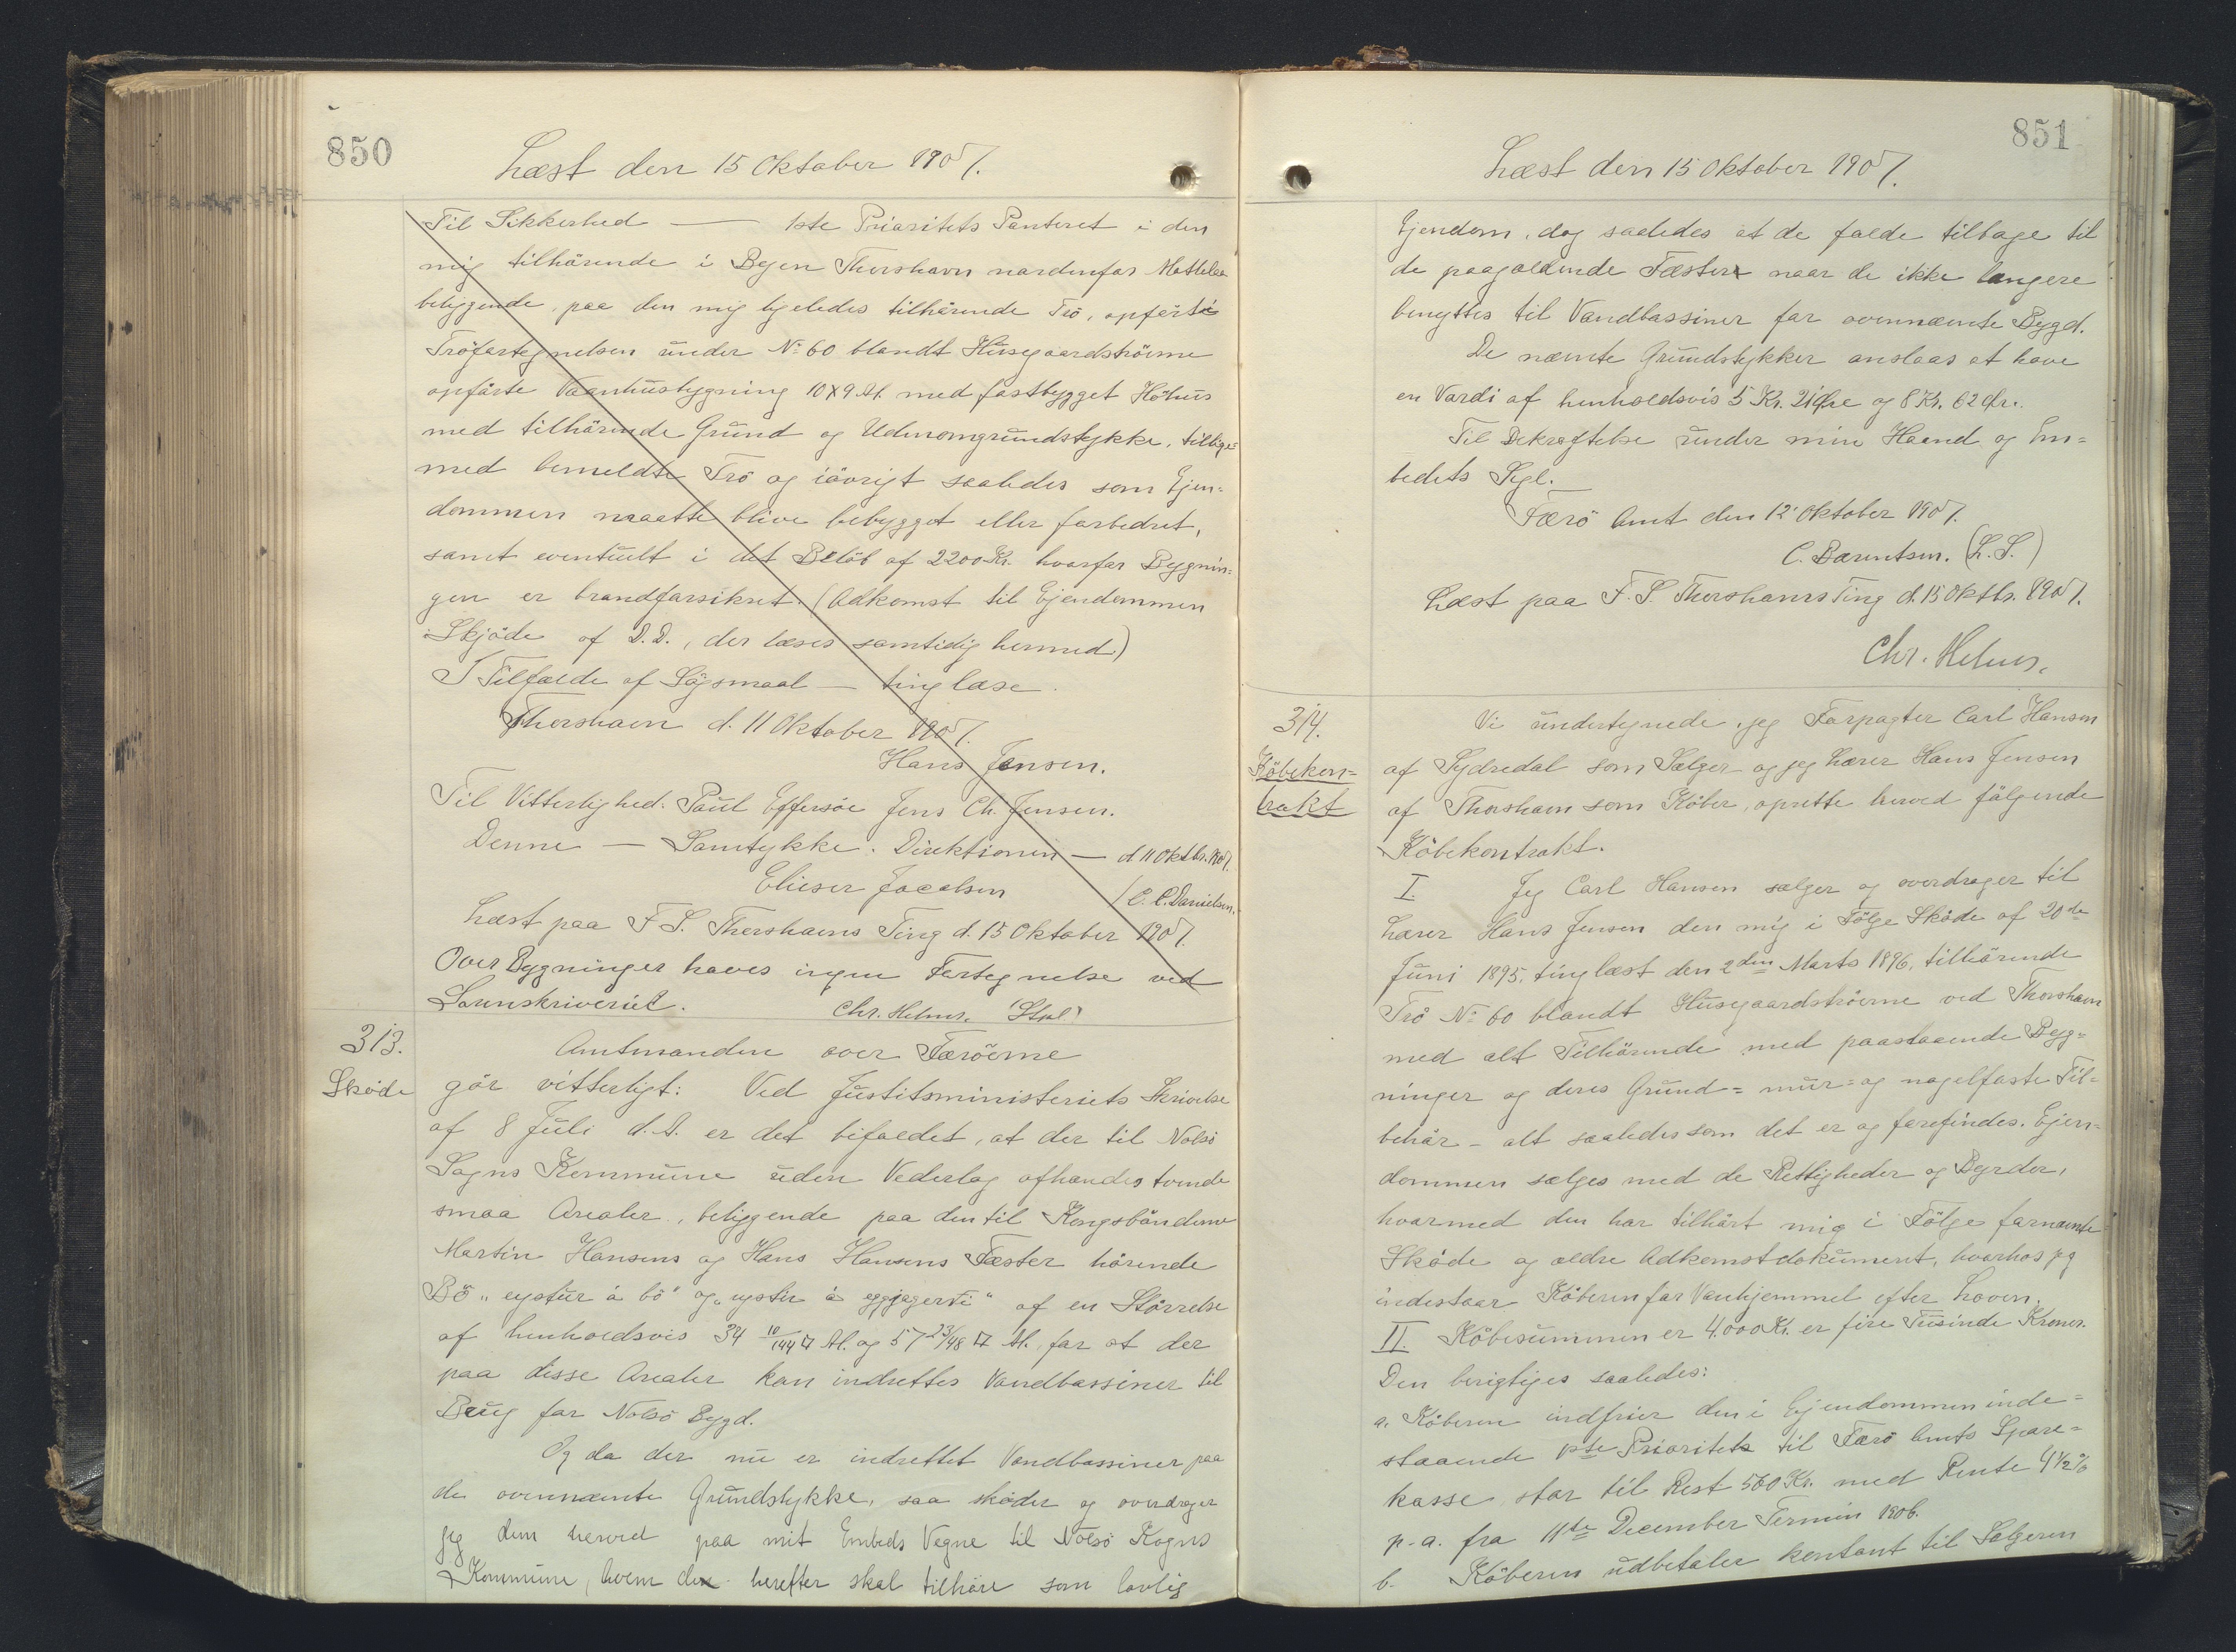 850
Læst den 15 Oktober 1907.
Til Sikkerhed — 1ste Prioritets Panteret i den
mig tilhörende i Byen Thorshavn nordenfor
beliggende, paa den mig ligeledes tilhörende Trö, opfört i
Tröfortegnelsen under No 60 blandt Husegaardströerne
opförte Vaanhusbygning 10 x 9 Al. med fastbygget Höhus
med tilhörende Grund og Udenomgrundstykke, tillige=
med bemeldte Trö og iövrigt saaledes som Ejen=
dommen maatte blive bebygget eller forbedret,
samt eventuelt i det Belöb af 2200 Kr. hvorfor Bygnin=
gen er brandforsikret. (Adkomst til Ejendommen
Skjöde af D.D., der læses samtidig hermed)
I Tilfælde af Sögsmaal — tinglæse.
Thorshavn d. 11 Oktober 1907.
Hans Jensen.
Til Vitterlighed: Paul Effersöe Jens Ch. Jensen.
Denne — Samtykke. Direktionen — d. 11 Oktbr. 1907.
Elieser Jacobsen / C. C. Danielsen.
Læst paa F. S. Thorshavns Ting d. 15 Oktober 1907.
Over Bygninger haves ingen Fortegnelse ved
Sorenskriveriet. Chr. Helms.
313.
Sköde
Amtmanden over Færöerne
gör vitterligt: Ved Justitsministeriets Skrivelse
af 8 Juli d. A. er det bifaldet, at der til Nolsö
Sogns Kommune uden Vederlag afhændes tvende
smaa Arealer, beliggende paa den til Kongsbönderne
Martin Hansens og Hans Hansens Fæster hörende
Bö „eystur á bö" og „eystur á eggjagerði" af en Störrelse
af henholdsvis 34 10/144 □ Al. og 57 23/48 □ Al. for at der
paa disse Arealer kan indrettes Vandbassiner til
Brug for Nolsö Bygd.
Og da der nu er indrettet Vandbassiner paa
de ovennævnte Grundstykke, saa sköder og overdrager
jeg dem herved paa mit Embeds Vegne til Nolsö Sogns
Kommune, hvem de herefter skal tilhöre som lovlig
851
Læst den 15 Oktober 1907.
Ejendom, dog saaledes at de falde tilbage til
de paagældende Fæster naar de ikke længere
benyttes til Vandbassiner for ovennævnte Bygd.
De nævnte Grundstykker anslaas at have
en Værdi af henholdsvis 5 Kr. 21 Öre og 8 Kr. 62 Öre.
Til Bekræftelse under min Haand og Em=
bedets Segl.
Færö Amt den 12' Oktober 1907.
C. Bærentsen. (L. S.)
Læst paa F. S. Thorshavns Ting d. 15 Oktbr. 1907.
Chr. Helms.
314.
Köbekon=
trakt
Vi undertegnede, jeg Forpagter Carl Hansen
af Sydredal som Sælger og jeg Lærer Hans Jensen
af Thorshavn som Köber, oprette herved fölgende
Köbekontrakt.
I. Jeg Carl Hansen sælger og overdrager til
Lærer Hans Jensen den mig i Fölge Sköde af 20de
Juni 1895, tinglæst den 2den Marts 1896, tilhörende
Trö No 60 blandt Husegaardströerne ved Thorshavn
med alt Tilhörende med paastaaende Byg=
ninger og deres Grund= mur= og nagelfaste Til=
behör – alt saaledes som det er og forefindes. Ejen=
dommen sælges med de Rettigheder og Byrder,
hvormed den har tilhört mig i Fölge fornævnte
Sköde og ældre Adkomstdokument, hvorhos jeg
indestaar Köberen for Vanhjemmel efter Loven.
II. Köbesummen er 4.000 Kr. er fire Tusinde Kroner.
Den berigtiges saaledes:
a. Köberen indfrier den i Ejendommen inde=
staaende 1ste Prioritet til Færö Amts Spare=
kasse, stor til Rest 560 Kr. med Rente 4½%
p. a. fra 11te December Termin 1906.
b. Köberen udbetaler kontant til Sælgeren